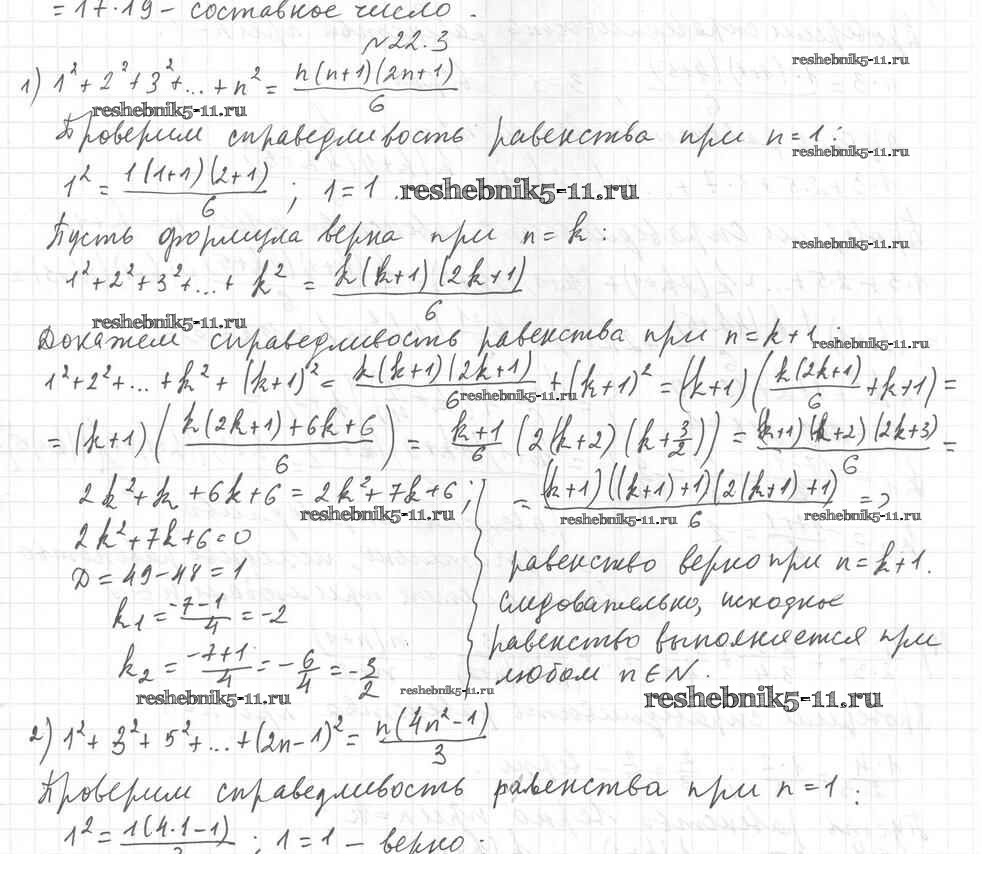 = 17·19 – составное число.
№22.3
1) 1² + 2² + 3² + ... + n² = n(n+1)(2n+1)/6
reshebnik5-11.ru
reshebnik5-11.ru
Проверим справедливость равенства при n=1:
reshebnik5-11.ru
1² = 1(1+1)(2+1)/6 ; 1=1. reshebnik5-11.ru
Пусть формула верна при n=k:
reshebnik5-11.ru
1² + 2² + 3² + ... + k² = k(k+1)(2k+1)/6
reshebnik5-11.ru
Докажем справедливость равенства при n=k+1:
reshebnik5-11.ru
1²+2²+...+k²+(k+1)² = k(k+1)(2k+1)/6 + (k+1)² = (k+1)(k(2k+1)/6 + k+1) =
reshebnik5-11.ru
= (k+1)((k(2k+1)+6k+6)/6) = (k+1)/6 (2(k+2)(k+3/2)) = (k+1)(k+2)(2k+3)/6 =
2k²+k+6k+6 = 2k²+7k+6;
= (k+1)((k+1)+1)(2(k+1)+1)/6 =>
reshebnik5-11.ru
reshebnik5-11.ru
reshebnik5-11.ru
2k²+7k+6=0
D = 49-48=1
k₁ = (-7-1)/4 = -2
k₂ = (-7+1)/4 = -6/4 = -3/2
reshebnik5-11.ru
reshebnik5-11.ru
равенство верно при n=k+1.
следовательно, исходное
равенство выполняется при
любом n∈N.
reshebnik5-11.ru
2) 1² + 3² + 5² + ... + (2n-1)² = n(4n²-1)/3
Проверим справедливость равенства при n=1:
1² = 1(4·1-1)/3 ; 1=1 – верно.